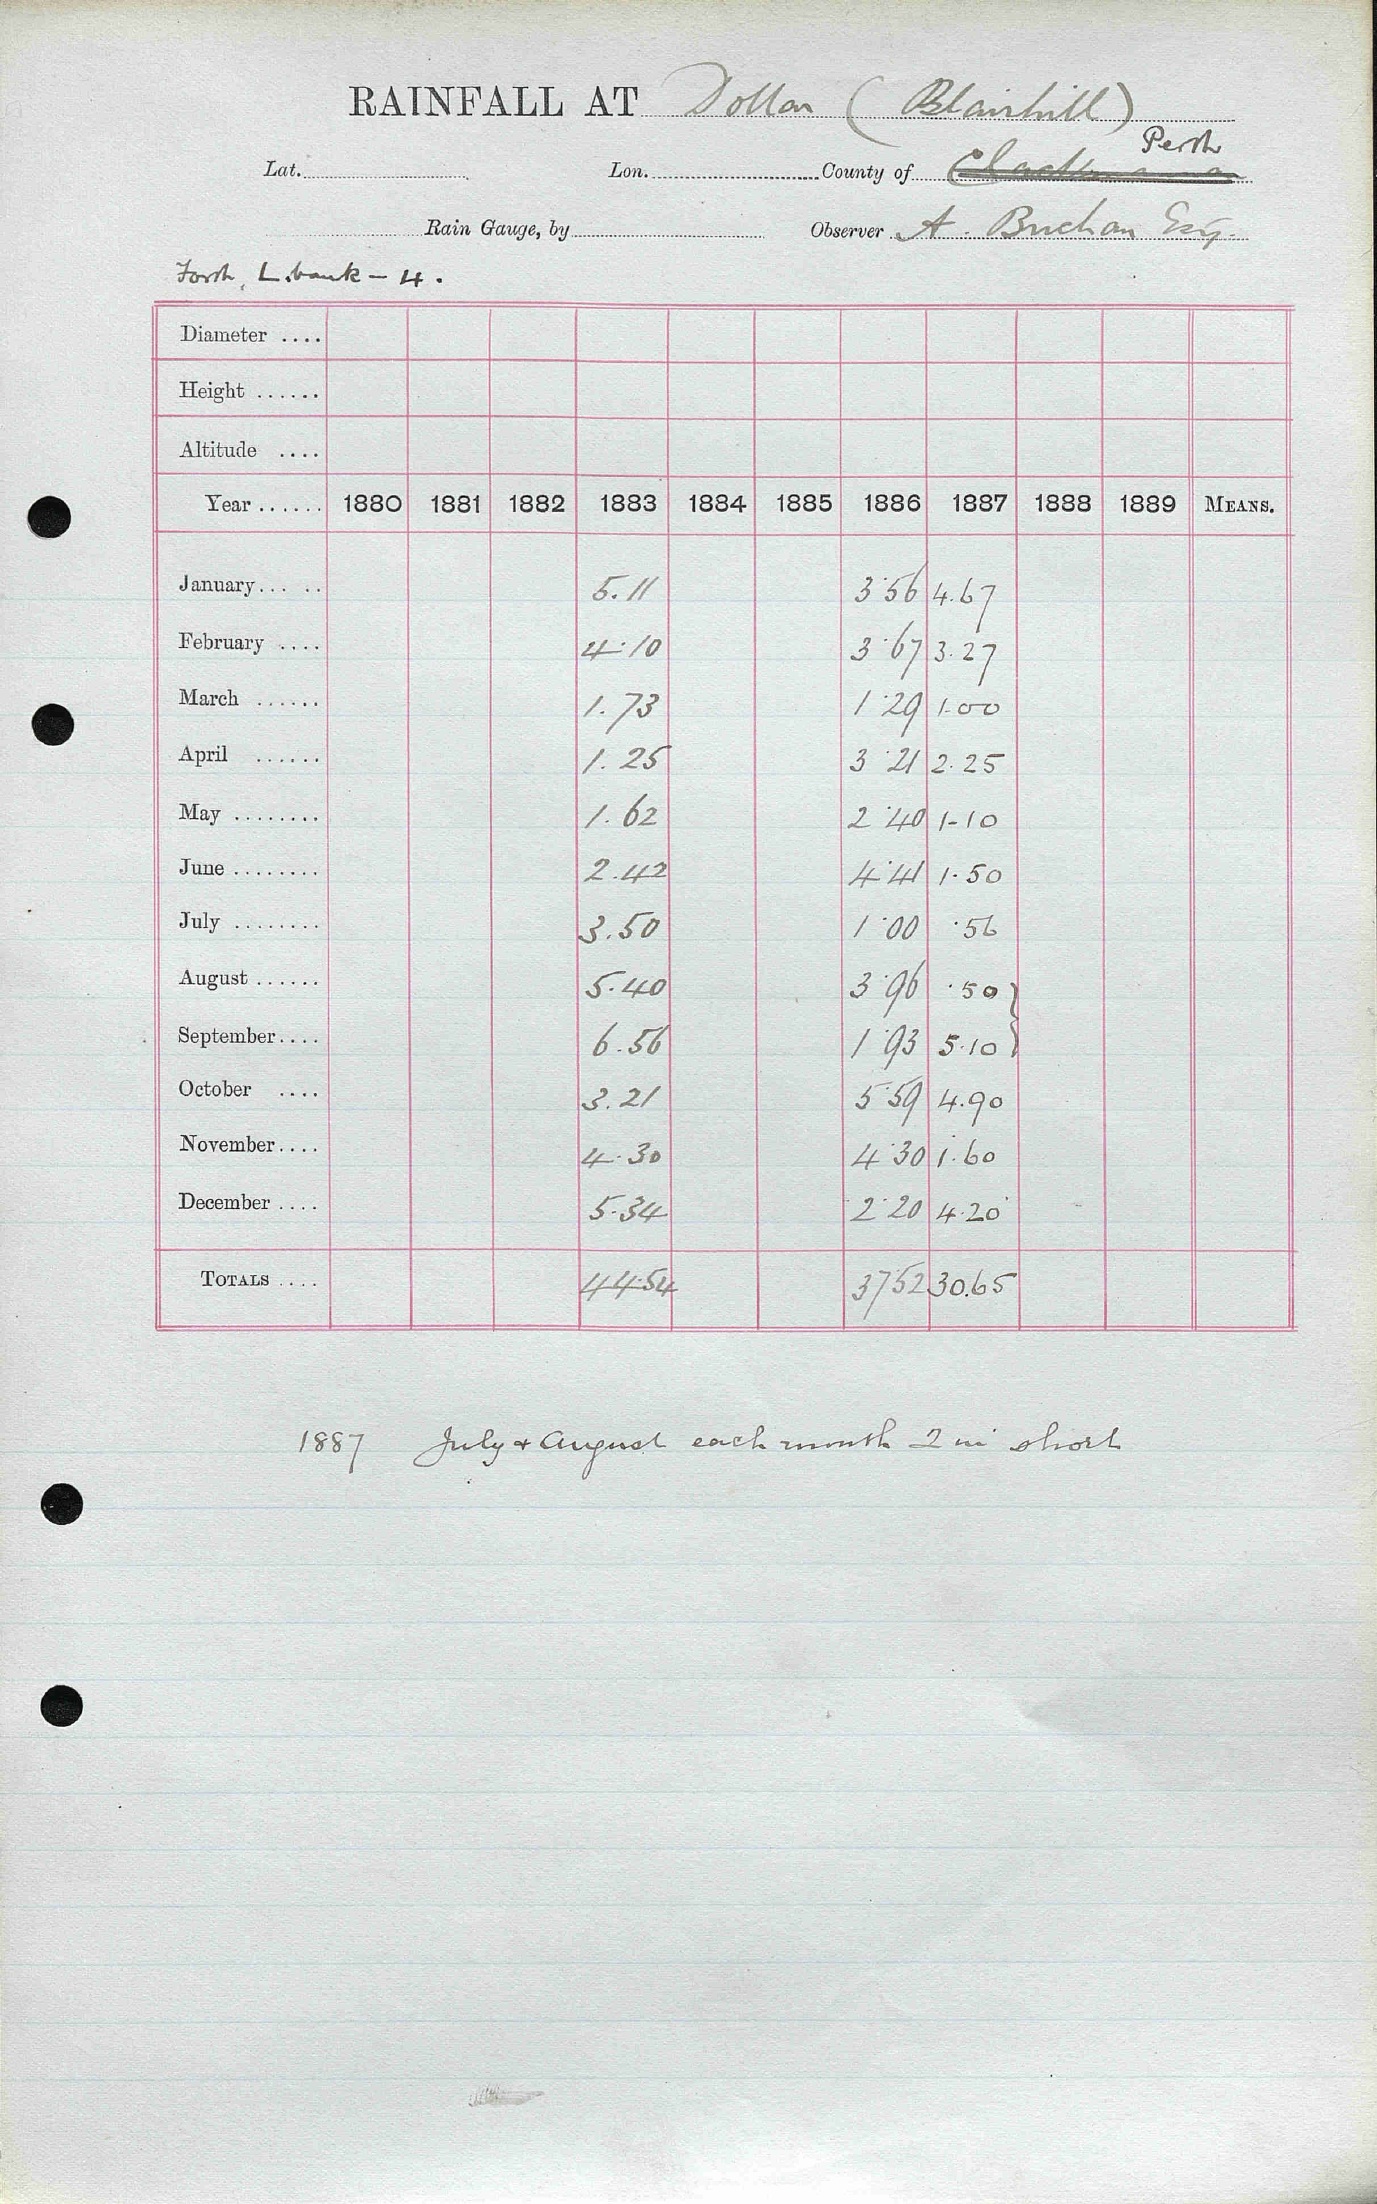 RAINFALL AT Dollar (Blairhill)
Perth
Lat. Lon. County of Clackmanna
Rain Gauge, by Observer A. Buchan Esq.
Forth, L. bank - 4.
Diameter ....
Height ......
Altitude ....
Year ...... 1880 1881 1882 1883 1884 1885 1886 1887 1888 1889 MEANS.
January... .. 5.11 3.56 4.67
February .... 4.10 3.67 3.27
March ...... 1.73 1.29 1.00
April ...... 1.25 3.21 2.25
May ........ 1.62 2.40 1.10
June ........ 2.42 4.41 1.50
July ........ 3.50 1.00 .56
August ...... 5.40 3.96 .50 }
September.... 6.56 1.93 5.10 }
October .... 3.21 5.59 4.90
November.... 4.30 4.30 1.60
December .... 5.34 2.20 4.20
TOTALS .... 44.54 37.52 30.65
1887 July & August each month 2 in short